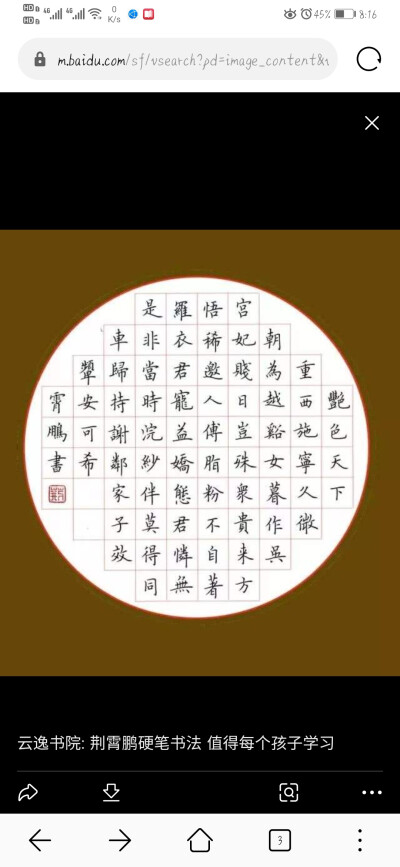 HD HD 4G 4G 0 K/s 45% 8:16
m.baidu.com/sf/vsearch?pd=image_content&
艷色天下
重西施寧久微
朝為越谿女暮作吳
宮妃賤日豈殊衆貴来方
悟稀邀人傅脂粉不自著
羅衣君寵益嬌態君憐無
是非當時浣紗伴莫得同
車歸持謝鄰家子效
顰安可希
霄鵬書
云逸书院: 荆霄鹏硬笔书法 值得每个孩子学习
3